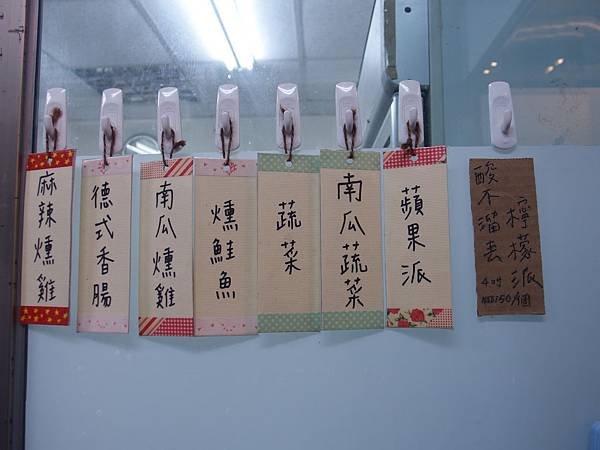 麻辣燻雞
德式香腸
南瓜燻雞
燻鮭魚
蔬菜
南瓜蔬菜
蘋果派
酸不溜丟
檸檬派
4吋
NT$150/個